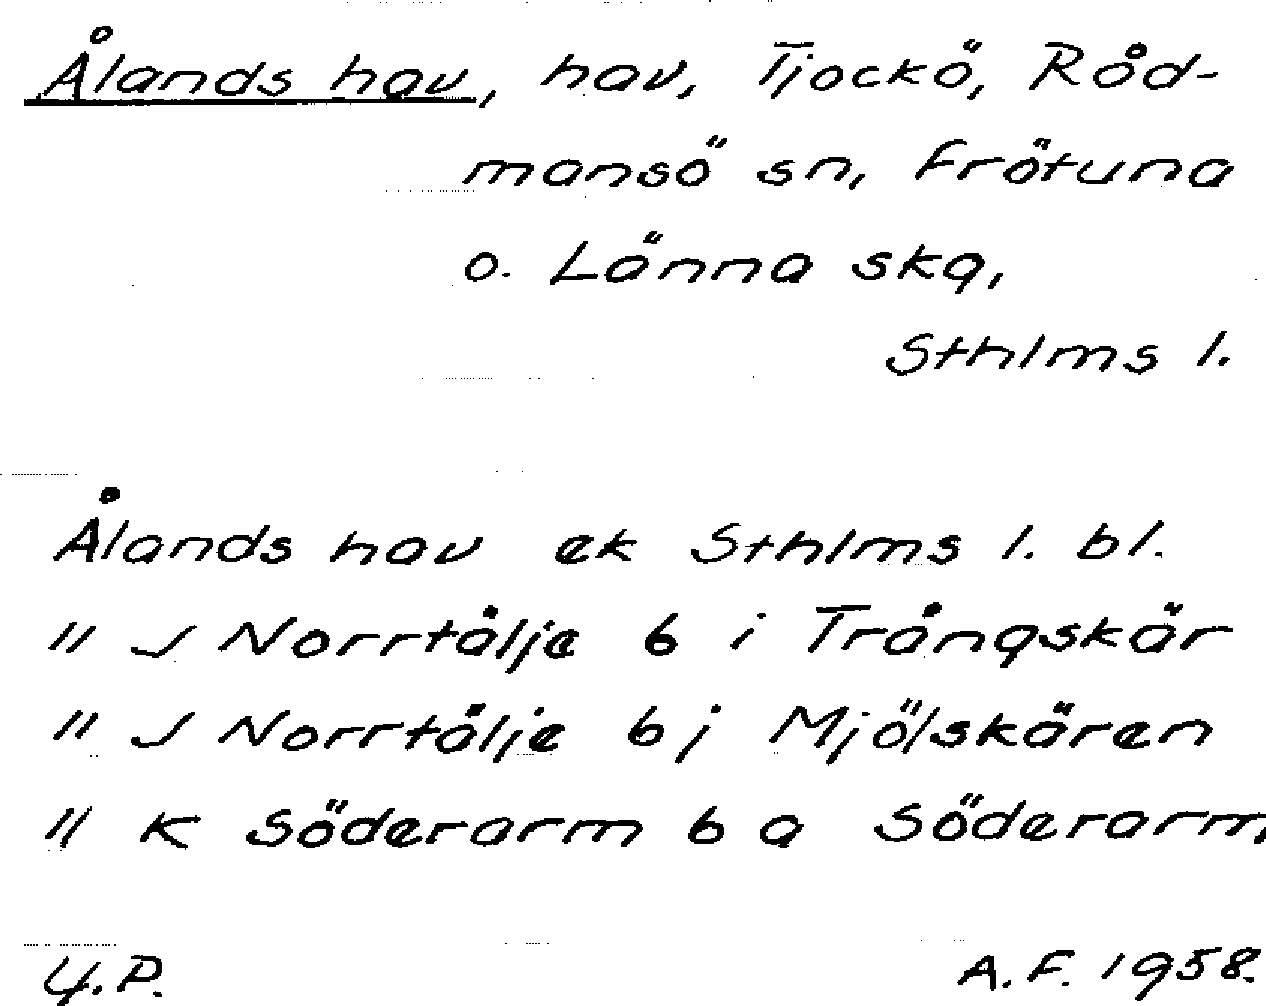 Ålands hav, hav, Tjockö, Råd-
mansö sn, Frötuna
o. Länna skg,
Sthlms l.
Ålands hav ek Sthlms l. bl.
" J Norrtälje 6 i Trångskär
" J Norrtälje 6 j Mjölskären
" K Söderarm 6 a Söderarm,
Y.P.
A.F. 1958.